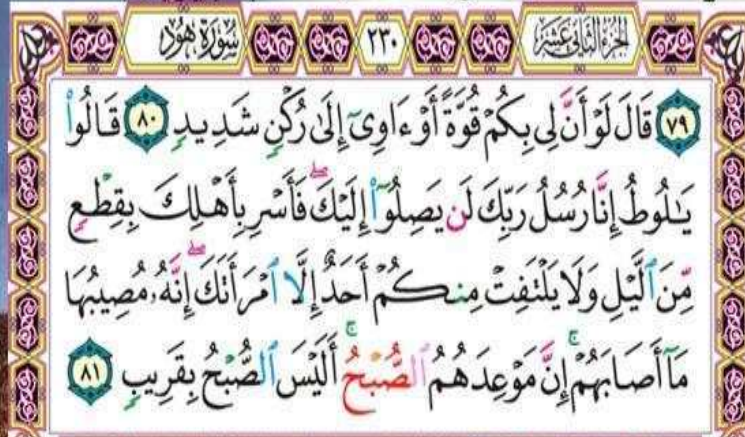 سُورَةُ هُودٍ ٢٣٠ الجزء الثاني عشر
٧٩ قَالَ لَوْ أَنَّ لِى بِكُمْ قُوَّةً أَوْ ءَاوِىٓ إِلَىٰ رُكْنٍ شَدِيدٍ ٨٠ قَالُوا۟
يَـٰلُوطُ إِنَّا رُسُلُ رَبِّكَ لَن يَصِلُوٓا۟ إِلَيْكَ ۖ فَأَسْرِ بِأَهْلِكَ بِقِطْعٍ
مِّنَ ٱلَّيْلِ وَلَا يَلْتَفِتْ مِنكُمْ أَحَدٌ إِلَّا ٱمْرَأَتَكَ ۖ إِنَّهُۥ مُصِيبُهَا
مَآ أَصَابَهُمْ ۚ إِنَّ مَوْعِدَهُمُ ٱلصُّبْحُ ۚ أَلَيْسَ ٱلصُّبْحُ بِقَرِيبٍ ٨١